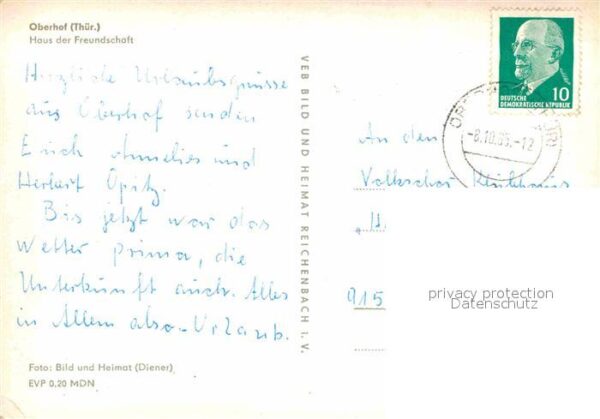 Oberhof (Thür.)
Haus der Freundschaft
Herzliche Urlaubsgrüsse
aus Oberhof senden
Euch Annelies und
Herbert Opitz.
Bis jetzt war das
Wetter prima, die
Unterkunft auch. Alles
in Allem also-Urlaub.
Foto: Bild und Heimat (Diener)
EVP 0,20 MDN
VEB BILD UND HEIMAT REICHENBACH I. V.
10
DEUTSCHE
DEMOKRATISCHE REPUBLIK
-8.10.65.-12
An den
Volkschor
915
privacy protection
Datenschutz